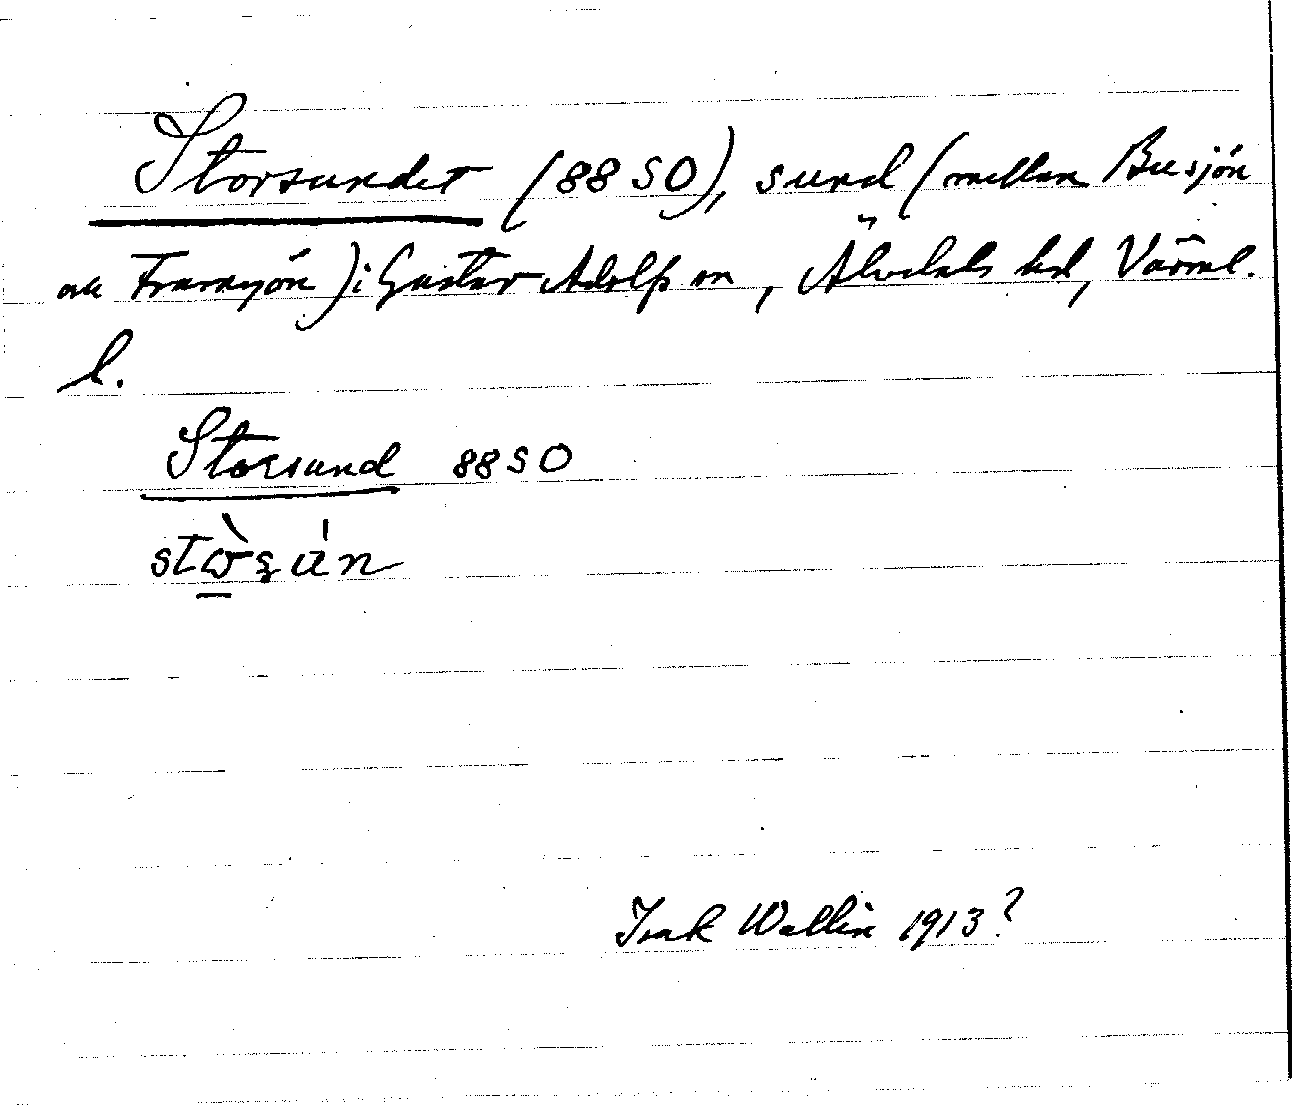 Storsundet (88 SO), sund (mellan Busjön
och Tranesjön) i Gustav Adolfs sn, Älvdals hd, Värml.
l.
Storsund 88 SO
Isak Wallin 1913?